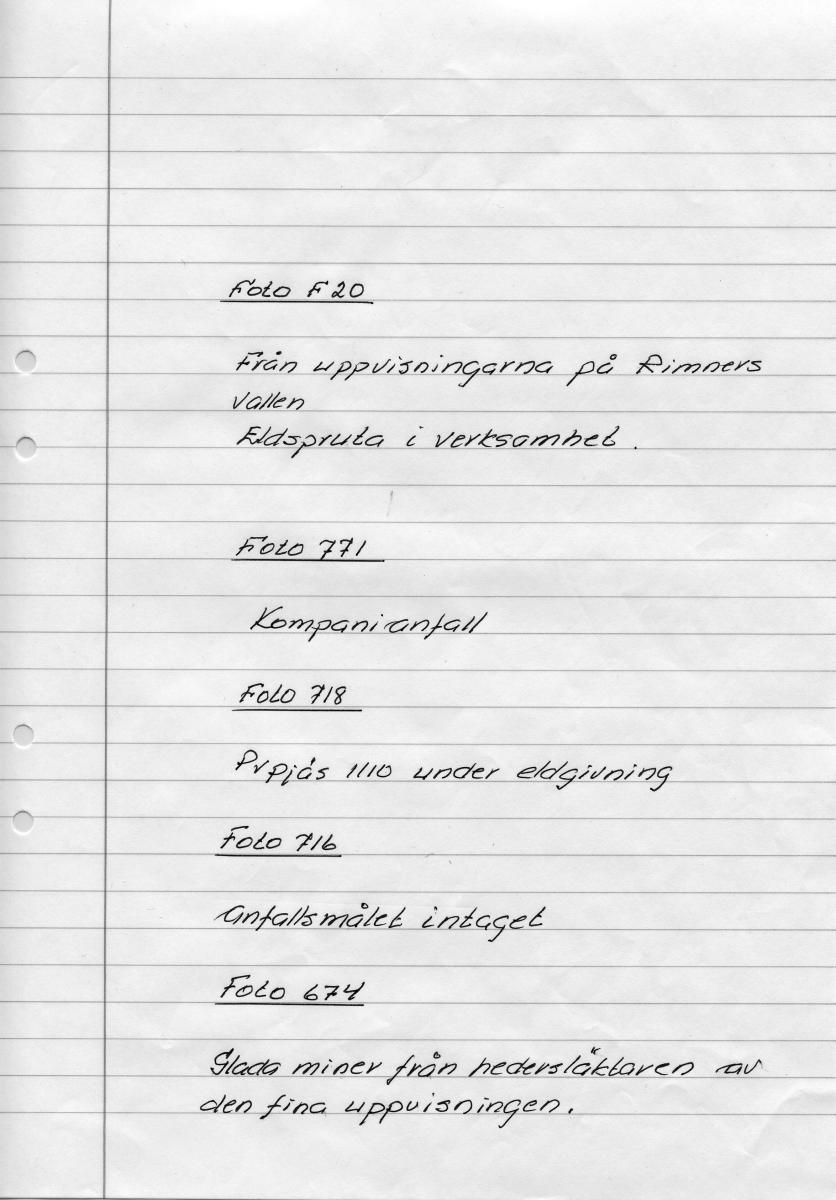 Foto F 20
Från uppvisningarna på Rimners
vallen
Eldspruta i verksamhet.
Foto 771
Kompanianfall
Foto 718
Pvpjäs 1110 under eldgivning
Foto 716
Anfallsmålet intaget
Foto 674
Glada miner från hedersläktaren av
den fina uppvisningen.